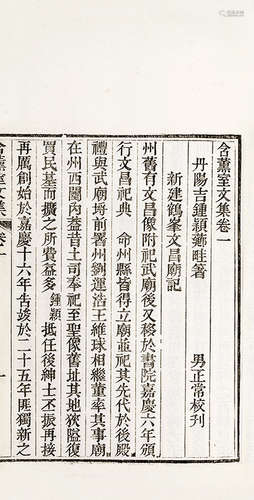 含薰室文集卷一
丹陽吉鍾穎薌畦著 男正常校刊
新建鶴峯文昌廟記
州舊有文昌像附祀武廟後又移於書院嘉慶六年頒
行文昌祀典 命州縣皆得立廟並祀其先代於後殿
禮與武廟埒前署州劉運浩王維球相繼董率其事廟
在州西關內蓋昔土司奉祀至聖像舊址其地狹隘復
買民基而擴之所費益多鍾穎抵任後紳士丕振再接
再厲創始於嘉慶十六年告竣於二十五年匪獨新之
含薰室文集 卷一 一